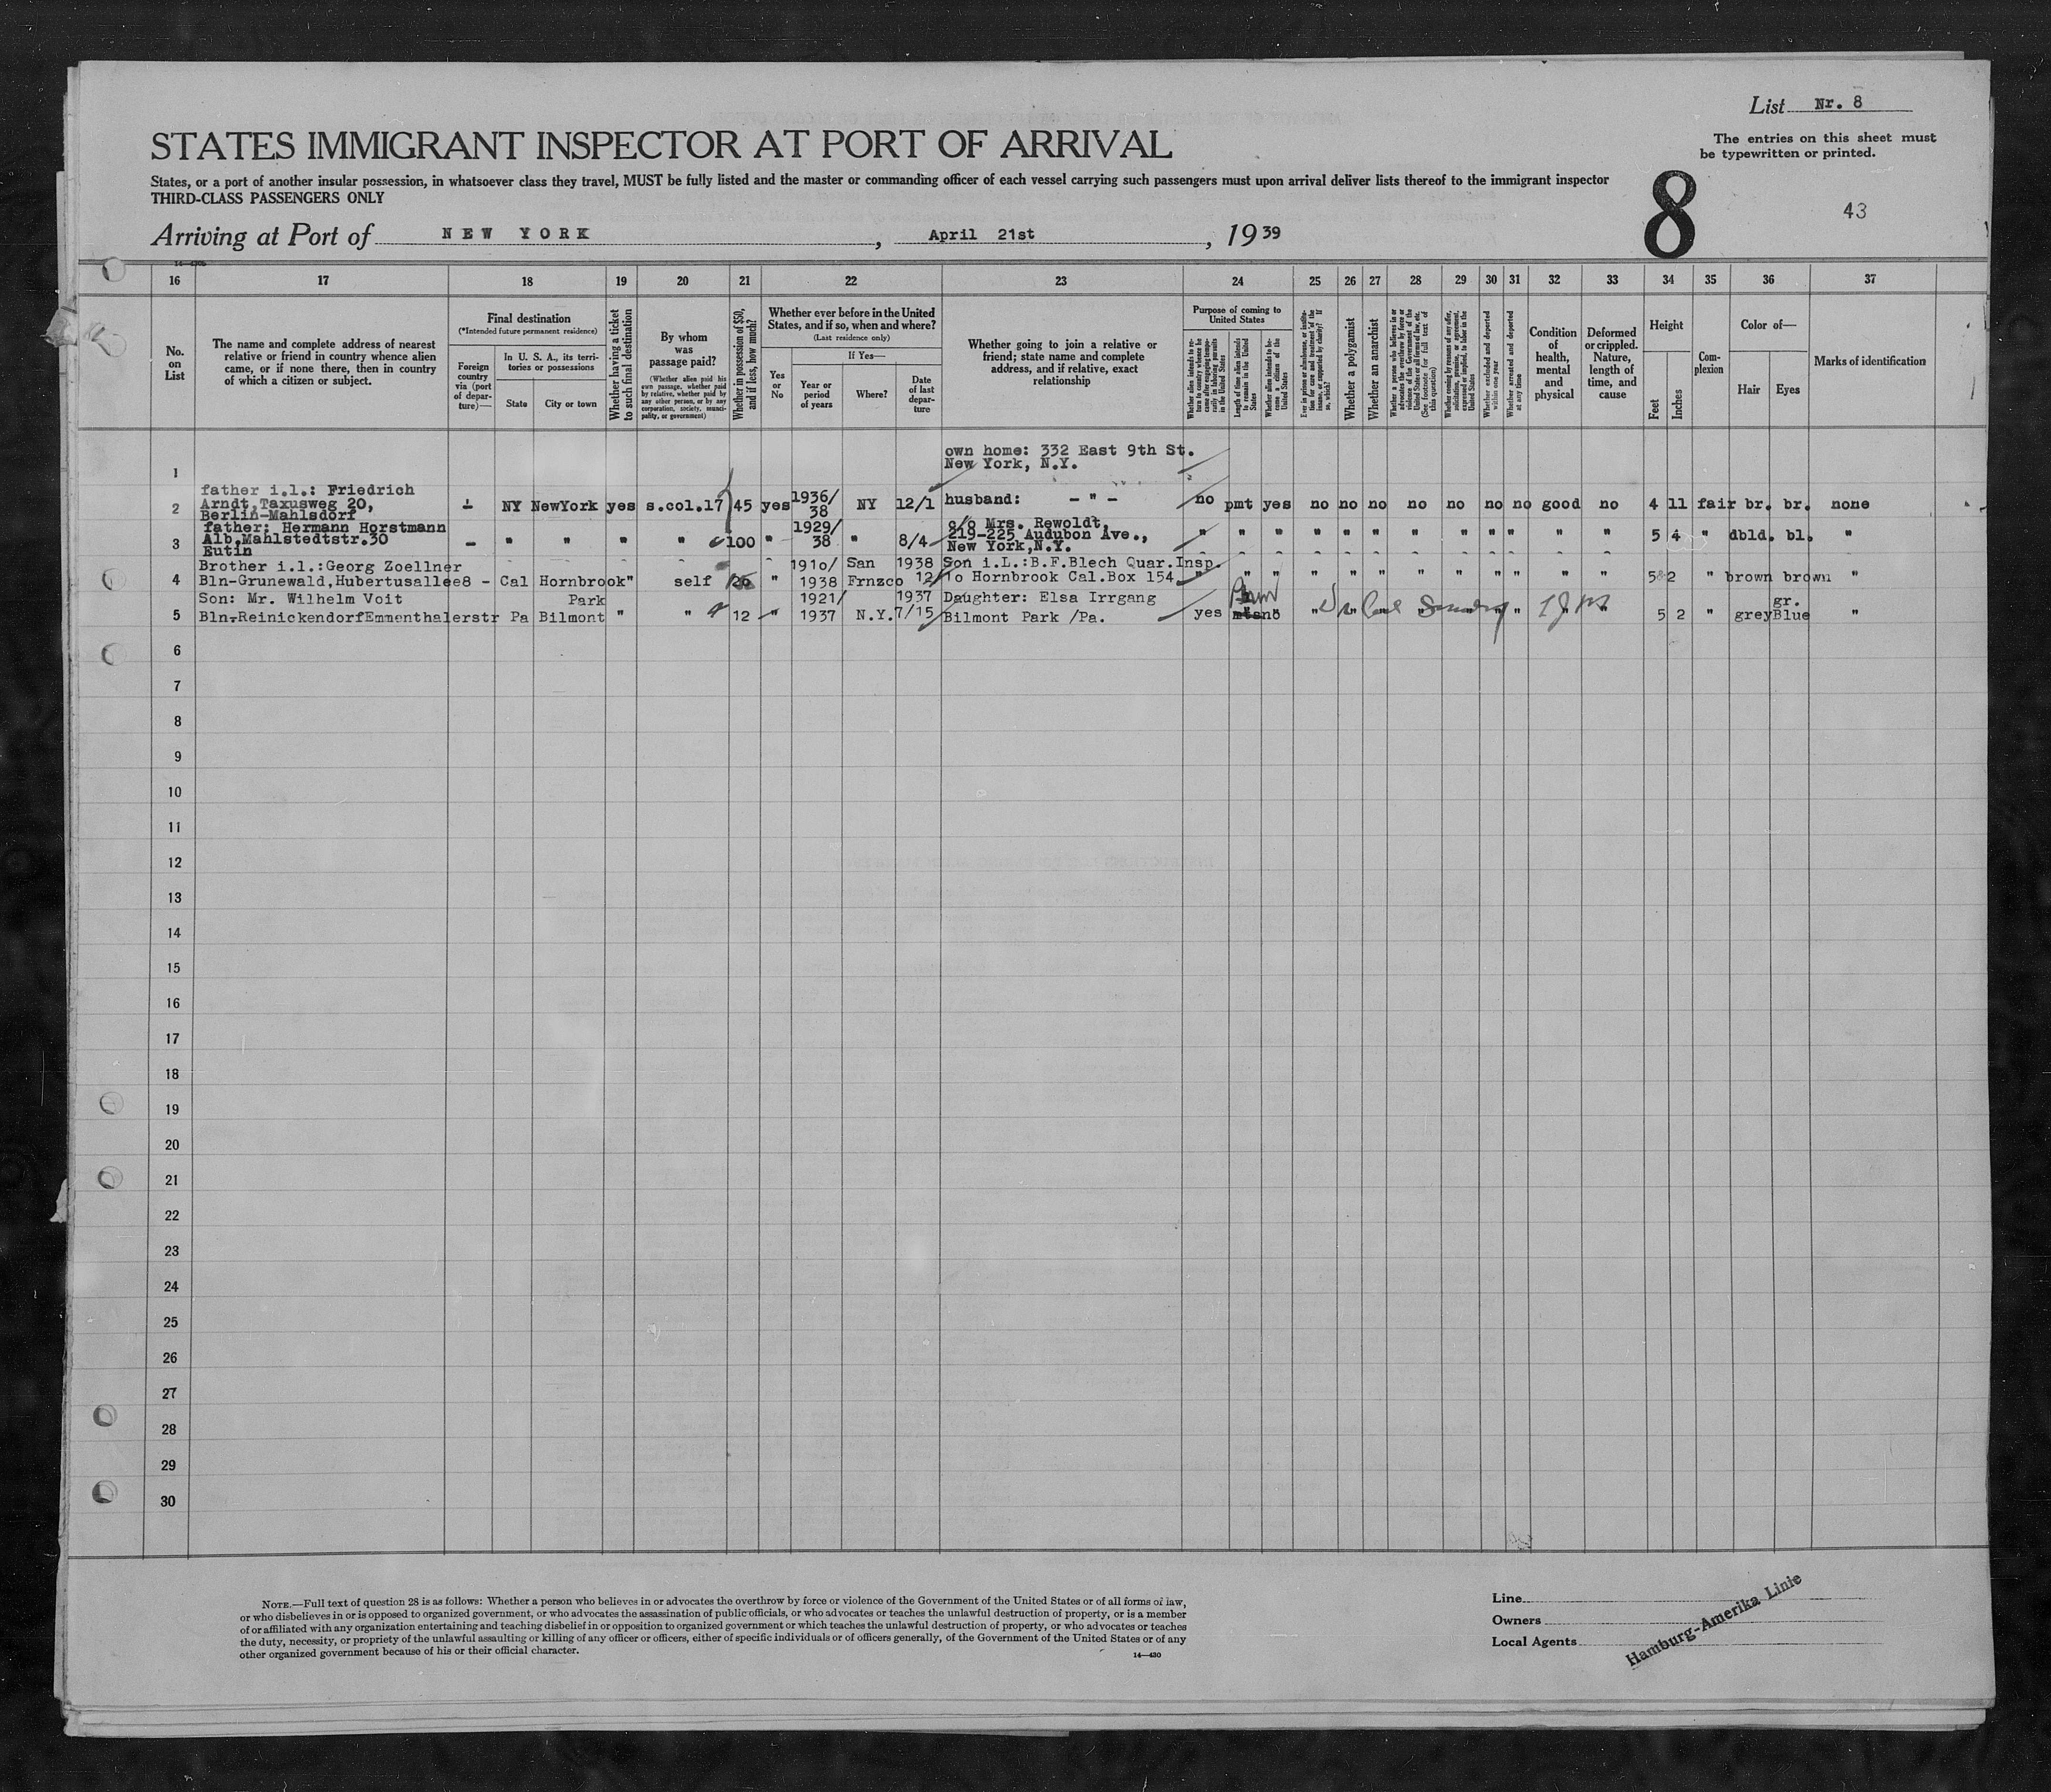 List Nr. 8
STATES IMMIGRANT INSPECTOR AT PORT OF ARRIVAL
The entries on this sheet must
be typewritten or printed.
States, or a port of another insular possession, in whatsoever class they travel, MUST be fully listed and the master or commanding officer of each vessel carrying such passengers must upon arrival deliver lists thereof to the immigrant inspector
THIRD-CLASS PASSENGERS ONLY
8
43
Arriving at Port of NEW YORK, April 21st, 19 39
16 17 18 19 20 21 22 23 24 25 26 27 28 29 30 31 32 33 34 35 36 37
No.
on
List
The name and complete address of nearest
relative or friend in country whence alien
came, or if none there, then in country
of which a citizen or subject.
Final destination
(*Intended future permanent residence)
Foreign
country
via (port
of depar-
ture)—
In U. S. A., its terri-
tories or possessions
State
City or town
Whether having a ticket
to such final destination
By whom
was
passage paid?
(Whether alien paid his
own passage, whether paid
by relative, whether paid by
any other person, or by any
corporation, society, munici-
pality, or government)
Whether in possession of $50,
and if less, how much?
Whether ever before in the United
States, and if so, when and where?
(Last residence only)
Yes
or
No
If Yes—
Year or
period
of years
Where?
Date
of last
depar-
ture
Whether going to join a relative or
friend; state name and complete
address, and if relative, exact
relationship
Purpose of coming to
United States
Whether alien intends to re-
turn to country whence he
came after engaging tempo-
rarily in laboring pursuits
in the United States
Length of time alien intends
to remain in the United
States
Whether alien intends to be-
come a citizen of the
United States
Ever in prison or almshouse, or institu-
tion for care and treatment of the
insane, or supported by charity? If
so, which?
Whether a polygamist
Whether an anarchist
Whether a person who believes in or
advocates the overthrow by force or
violence of the Government of the
United States or all forms of law, etc.
(See footnote for full text of
this question)
Whether coming by reasons of any offer,
solicitation, promise, or agreement,
expressed or implied, to labor in the
United States
Whether excluded and deported
within one year
Whether arrested and deported
at any time
Condition
of
health,
mental
and
physical
Deformed
or crippled.
Nature,
length of
time, and
cause
Height
Feet
Inches
Com-
plexion
Color of—
Hair
Eyes
Marks of identification
own home: 332 East 9th St.
1 New York, N.Y.
father i.l.: Friedrich
2 Arndt, Taxusweg 20, NY NewYork yes s.col.17 45 yes 1936/ 38 NY 12/1 husband: - " - no pmt yes no no no no no no no good no 4 11 fair br. br. none
Berlin-Mahlsdorf
father: Hermann Horstmann 1929/ c/o Mrs. Rewoldt,
3 Alb.Mahlstedtstr.30 - " " " " 100 " 38 " 8/4 219-225 Audubon Ave., " " " " " " " " " " " " 5 4 " dbld. bl. "
Eutin New York,N.Y.
Brother i.l.:Georg Zoellner 1910/ San 1938 Son i.L.:B.F.Blech Quar.Insp.
4 Bln-Grunewald,Hubertusallee8 - Cal Hornbrook " self 20 " 1938 Frnzco 12/1o Hornbrook Cal.Box 154 " " " " " " " " " " " " 5 2 " brown brown "
Son: Mr. Wilhelm Voit Park 1921/ 1937 Daughter: Elsa Irrgang gr.
5 Bln-ReinickendorfEmmenthalerstr Pa Bilmont " " 12 " 1937 N.Y. 7/15 Bilmont Park /Pa. yes no " " " " " " " " " 5 2 " grey Blue "
6
7
8
9
10
11
12
13
14
15
16
17
18
19
20
21
22
23
24
25
26
27
28
29
30
NOTE.—Full text of question 28 is as follows: Whether a person who believes in or advocates the overthrow by force or violence of the Government of the United States or of all forms of law,
or who disbelieves in or is opposed to organized government, or who advocates the assassination of public officials, or who advocates or teaches the unlawful destruction of property, or is a member
of or affiliated with any organization entertaining and teaching disbelief in or opposition to organized government or which teaches the unlawful destruction of property, or who advocates or teaches
the duty, necessity, or propriety of the unlawful assaulting or killing of any officer or officers, either of specific individuals or of officers generally, of the Government of the United States or of any
other organized government because of his or their official character.
14—430
Line
Owners
Local Agents
Hamburg-Amerika Linie